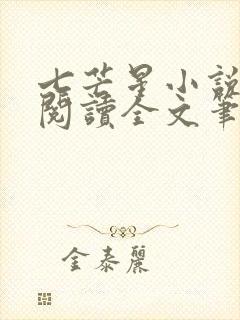 七芒星小說
閱讀全文筆
金泰麗